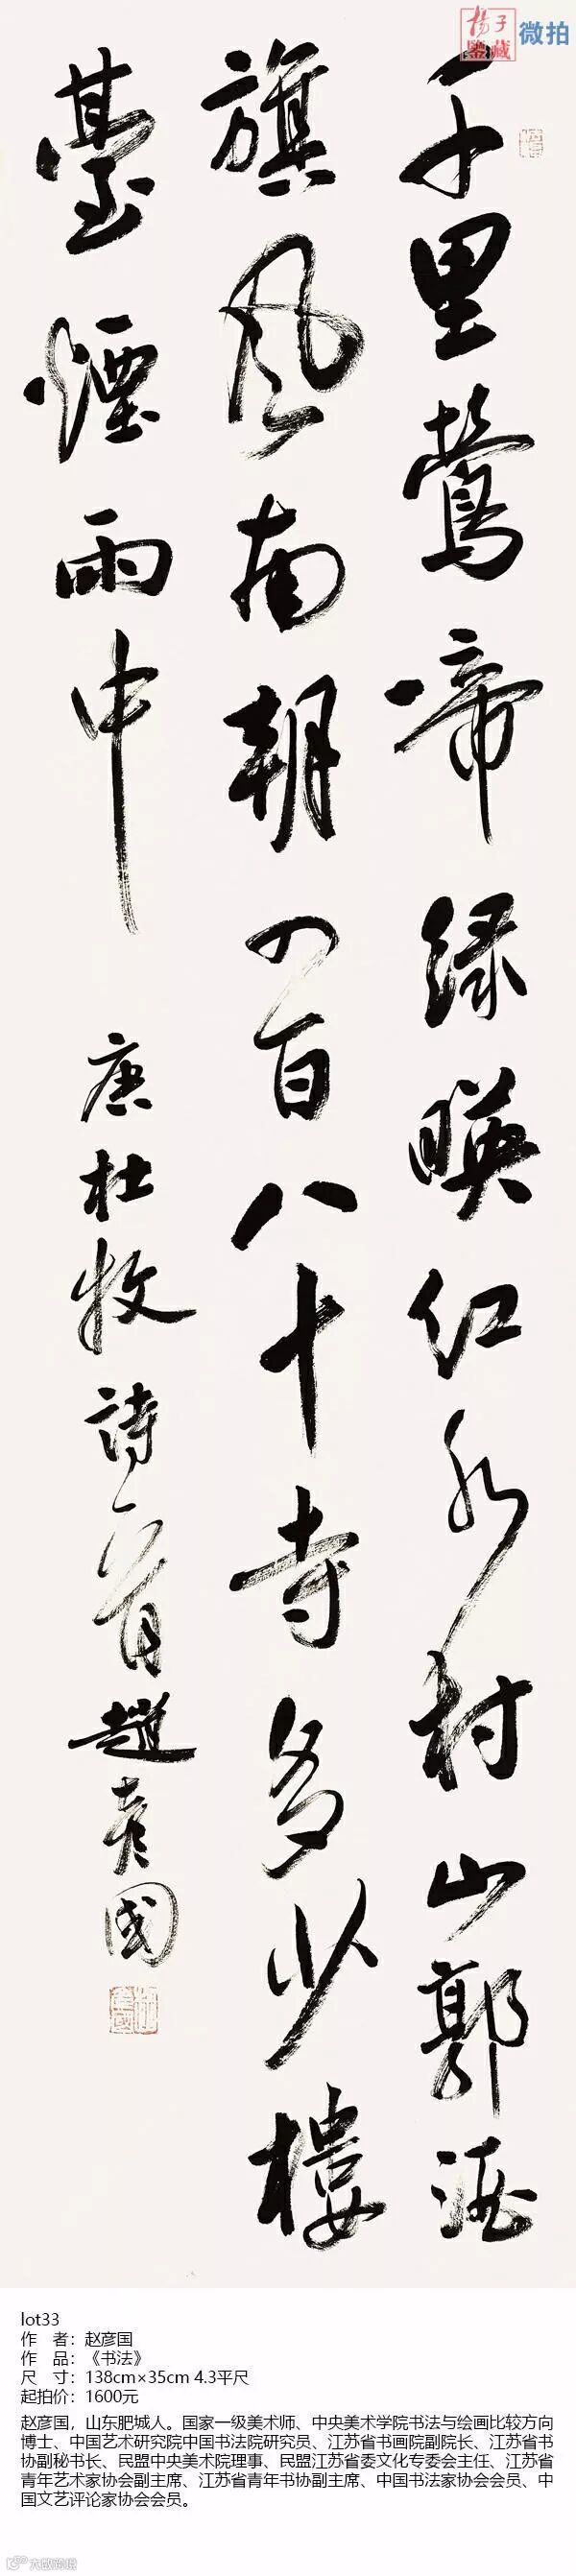 杨子
鉴藏
微拍
千里鶯啼緑暎红水村山郭酒
旗風南朝四百八十寺多少樓
臺煙雨中
唐杜牧詩一首趙彦國
lot33
作 者：赵彦国
作 品：《书法》
尺 寸：138cm×35cm 4.3平尺
起拍价：1600元
赵彦国，山东肥城人。国家一级美术师、中央美术学院书法与绘画比较方向
博士、中国艺术研究院中国书法院研究员、江苏省书画院副院长、江苏省书
协副秘书长、民盟中央美术院理事、民盟江苏省委文化专委会主任、江苏省
青年艺术家协会副主席、江苏省青年书协副主席、中国书法家协会会员、中
国文艺评论家协会会员。